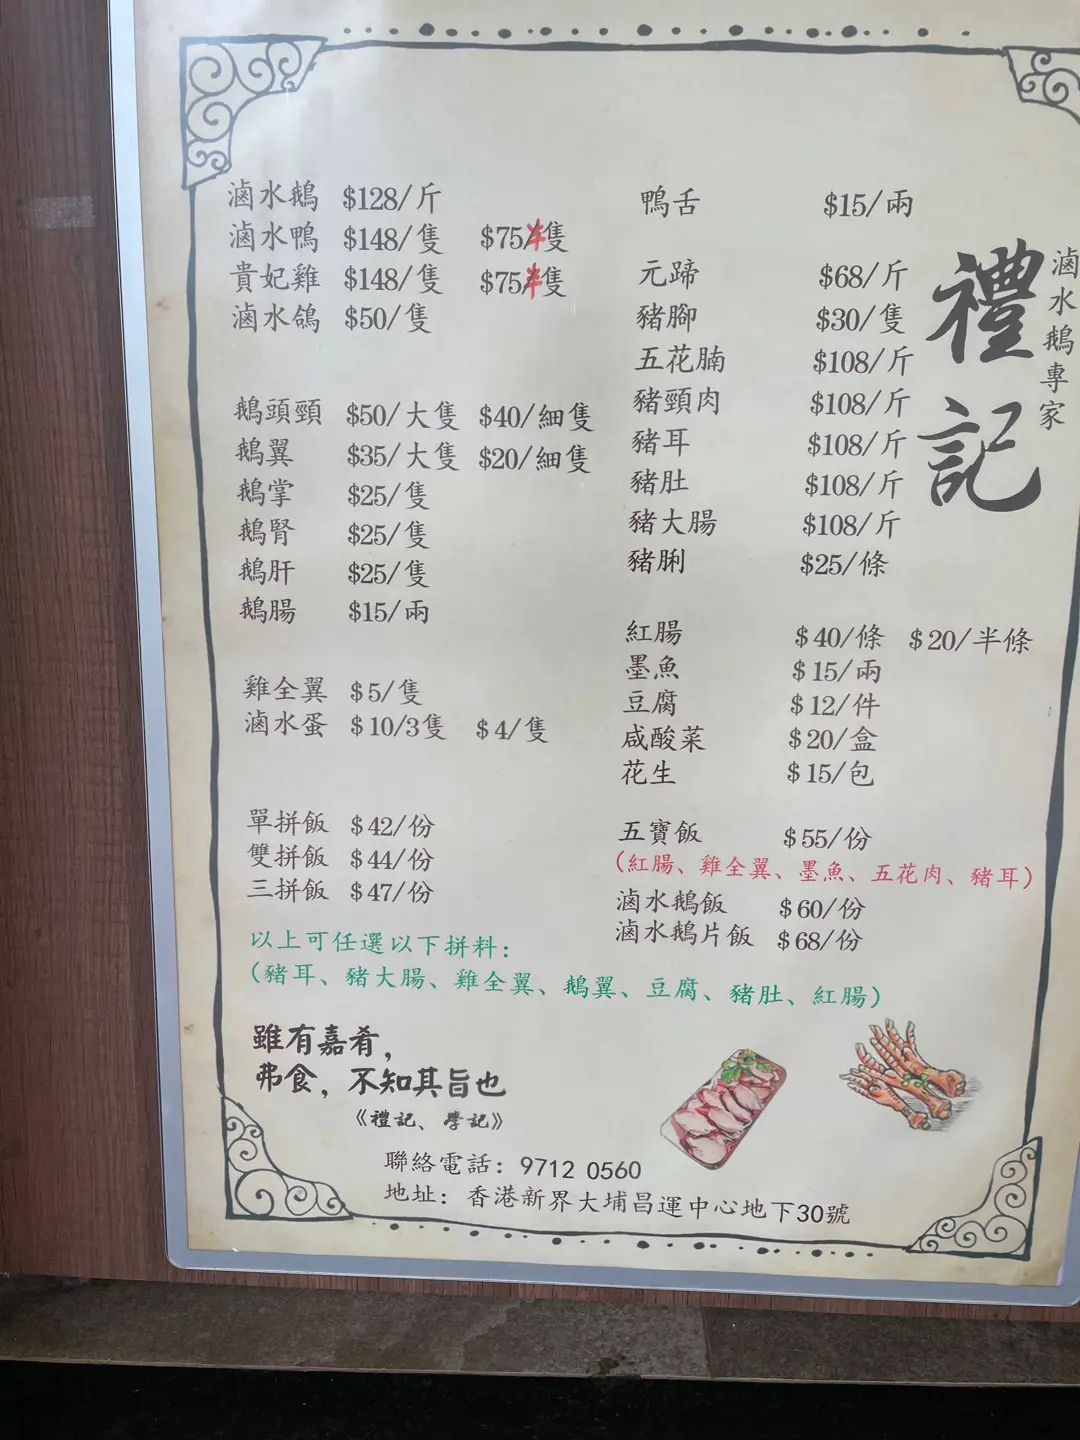 滷水鵝 $128/斤
滷水鴨 $148/隻 $75半隻
貴妃雞 $148/隻 $75半隻
滷水鴿 $50/隻
鵝頭頸 $50/大隻 $40/細隻
鵝翼 $35/大隻 $20/細隻
鵝掌 $25/隻
鵝腎 $25/隻
鵝肝 $25/隻
鵝腸 $15/兩
雞全翼 $5/隻
滷水蛋 $10/3隻 $4/隻
單拼飯 $42/份
雙拼飯 $44/份
三拼飯 $47/份
鴨舌 $15/兩
元蹄 $68/斤
豬腳 $30/隻
五花腩 $108/斤
豬頸肉 $108/斤
豬耳 $108/斤
豬肚 $108/斤
豬大腸 $108/斤
豬脷 $25/條
紅腸 $40/條 $20/半條
墨魚 $15/兩
豆腐 $12/件
咸酸菜 $20/盒
花生 $15/包
五寶飯 $55/份
(紅腸、雞全翼、墨魚、五花肉、豬耳)
滷水鵝飯 $60/份
滷水鵝片飯 $68/份
滷水鵝專家
禮記
以上可任選以下拼料:
(豬耳、豬大腸、雞全翼、鵝翼、豆腐、豬肚、紅腸)
雖有嘉肴，
弗食，不知其旨也
《禮記、學記》
聯絡電話: 9712 0560
地址: 香港新界大埔昌運中心地下30號